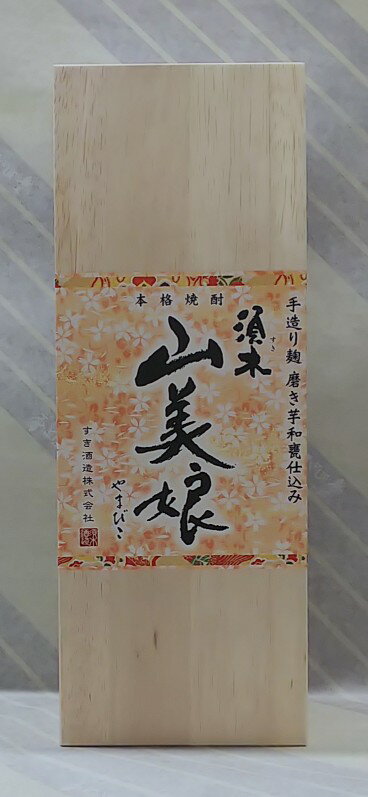 本格焼酎
手造り麹 磨き芋和甕仕込み
須木
すき
山美娘
やまびこ
すき酒造株式会社